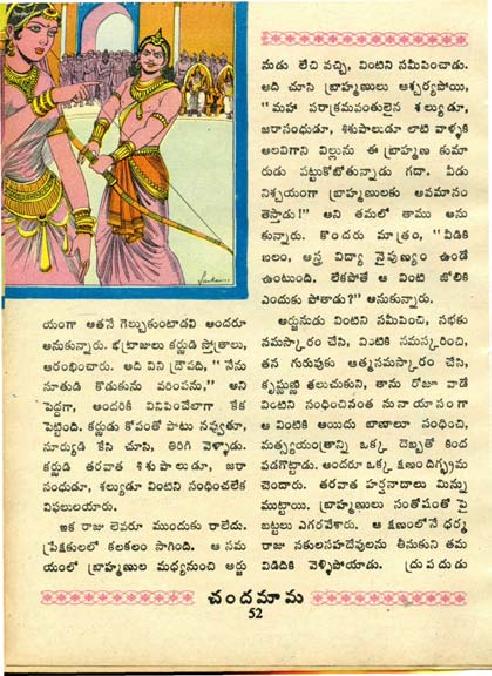 యంగా అతనే గెల్చుకుంటాడని అందరూ
అనుకున్నారు. భట్రాజులు కర్ణుడి స్తోత్రాలు,
ఆరంభించారు. అది విని ద్రౌపది, "నేను
సూతుడి కొడుకును వరింపను," అని
పెద్దగా, అందరికీ వినిపించేలాగా కేక
పెట్టింది. కర్ణుడు కోపంతో పాటు నవ్వుతూ,
సూర్యుడి కేసి చూసి, తిరిగి వెళ్ళాడు.
కర్ణుడి తరవాత శిశుపాలుడూ, జరా
సంధుడూ, శల్యుడూ వింటిని సంధించలేక
విఫలులయారు.
ఇక రాజు లెవరూ ముందుకు రాలేదు.
ప్రేక్షకులలో కలకలం సాగింది. ఆ సమ
యంలో బ్రాహ్మణుల మధ్యనుంచి అర్జు
నుడు లేచి వచ్చి, వింటిని సమీపించాడు.
అది చూసి బ్రాహ్మణులు ఆశ్చర్యపోయి,
"మహా పరాక్రమవంతులైన శల్యుడూ,
జరాసంధుడూ, శిశుపాలుడూ లాటి వాళ్ళకి
అలవిగాని విల్లును ఈ బ్రాహ్మణ కుమా
రుడు పట్టుకోబోతున్నాడు గదా. వీడు
నిశ్చయంగా బ్రాహ్మణులకు అవమానం
తెస్తాడు!" అని తమలో తాము అను
కున్నారు. కొందరు మాత్రం, "వీడికి
బలం, అస్త్ర విద్యా నైపుణ్యం ఉండే
ఉంటుంది. లేకపోతే ఆ వింటి జోలికి
ఎందుకు పోతాడు?" అనుకున్నారు.
అర్జునుడు వింటిని సమీపించి, సభకు
నమస్కారం చేసి, వింటికి నమస్కరించి,
తన గురువుకు ఆత్మనమస్కారం చేసి,
కృష్ణుణ్ణి తలుచుకుని, తాను రోజూ వాడే
వింటిని సంధించినంత సునాయాసంగా
ఆ వింటికి అయిదు బాణాలూ సంధించి,
మత్స్యయంత్రాన్ని ఒక్క దెబ్బతో కింద
పడగొట్టాడు. అందరూ ఒక్క క్షణం దిగ్భ్రమ
చెందారు. తరవాత హర్షనాదాలు మిన్ను
ముట్టాయి, బ్రాహ్మణులు సంతోషంతో పై
బట్టలు ఎగరవేశారు. ఆ క్షణంలోనే ధర్మ
రాజు నకులసహదేవులను తీసుకుని తమ
విడిదికి వెళ్ళిపోయాడు. ద్రుపదుడు
చందమామ
52